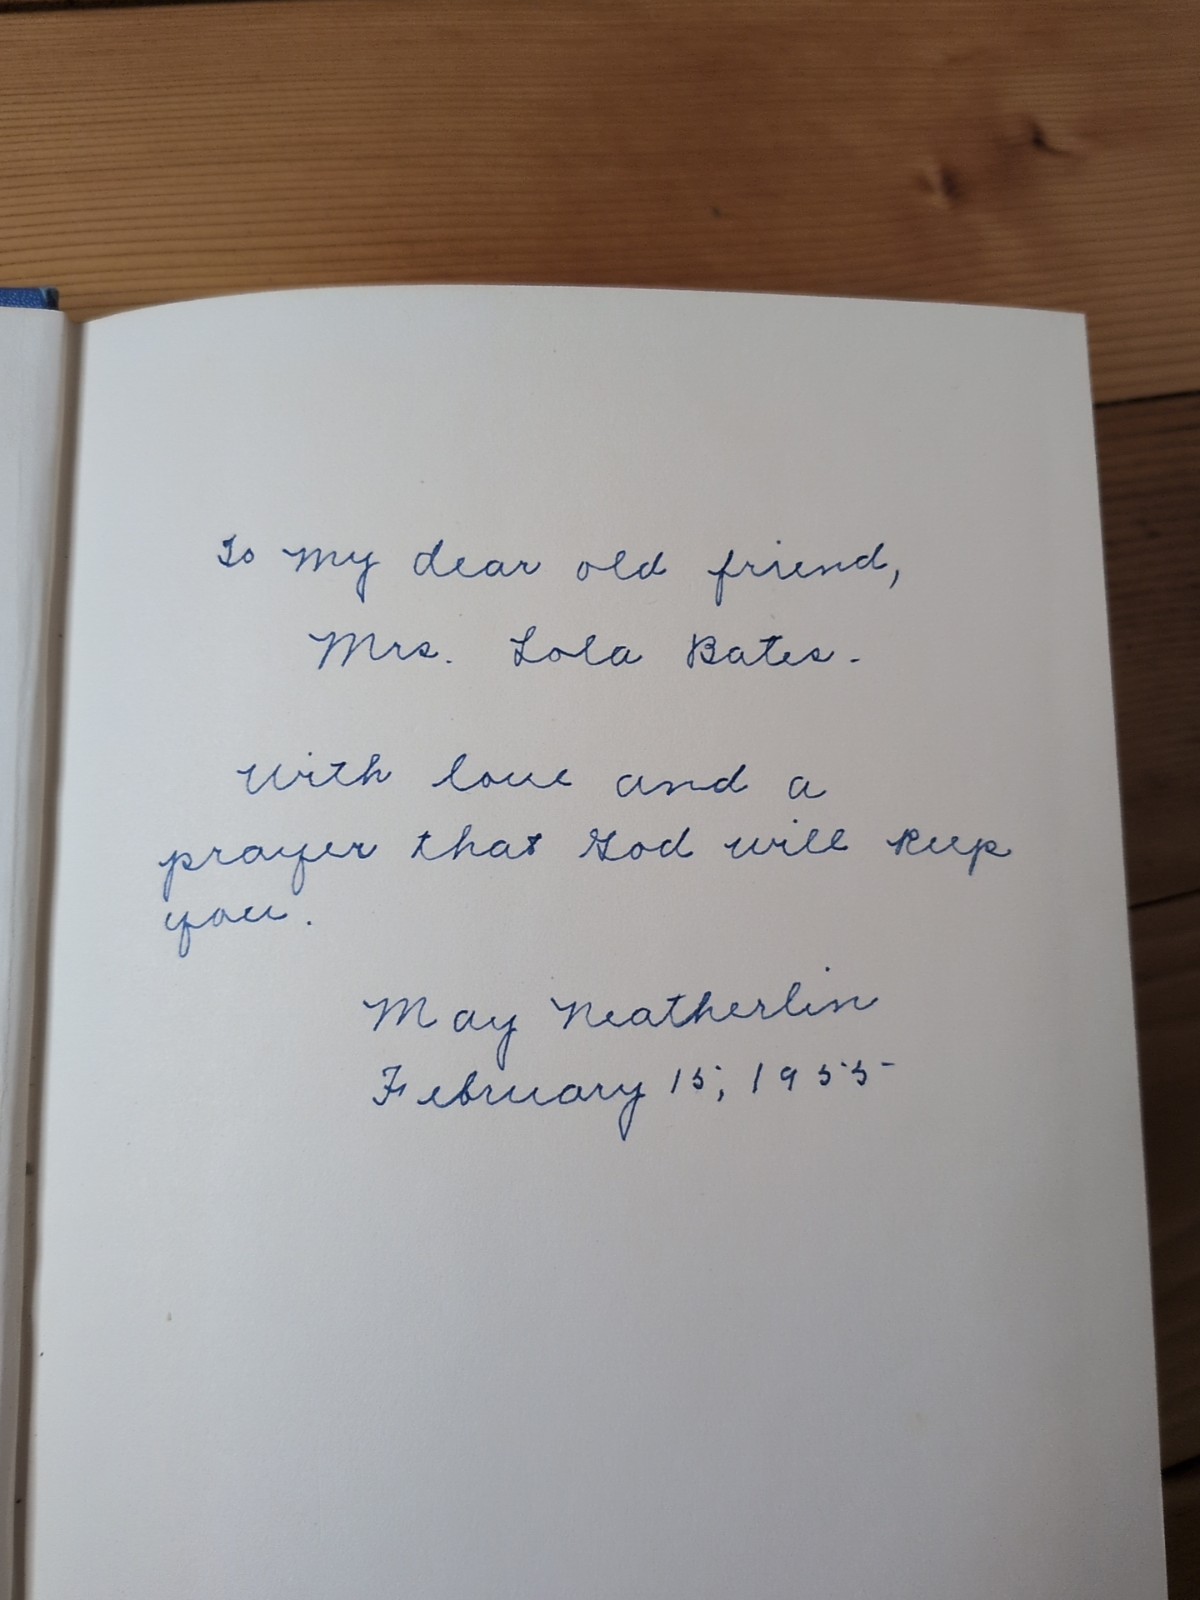 To my dear old friend,
Mrs. Lola Bates.
With love and a
prayer that God will keep
you.
May Neatherlin
February 15, 1955